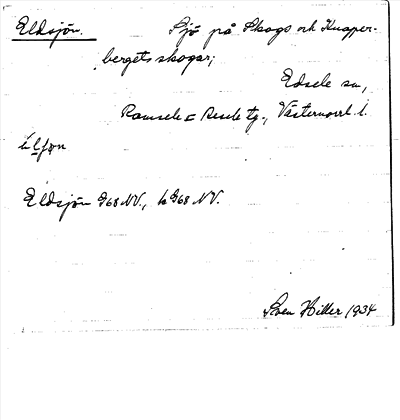 Eldsjön. Sjö på Skogs och Knapper-
bergets skogar;
Edsele sn,
Ramsele = Resele tg., Västernorrl. l.
Eldsjön G68 NV., k G68 NV.
Sven Hiller 1934